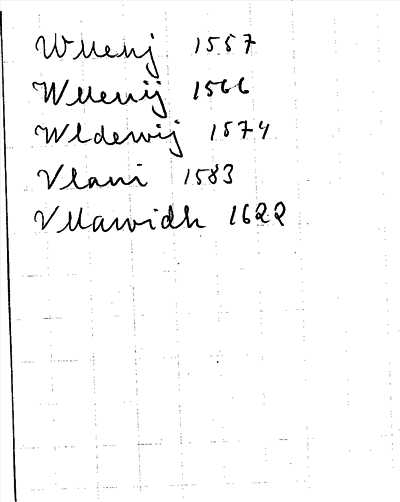 Wllenj 1557
Wllenij 1566
Wldewij 1574
Vlani 1583
Vllawidh 1622